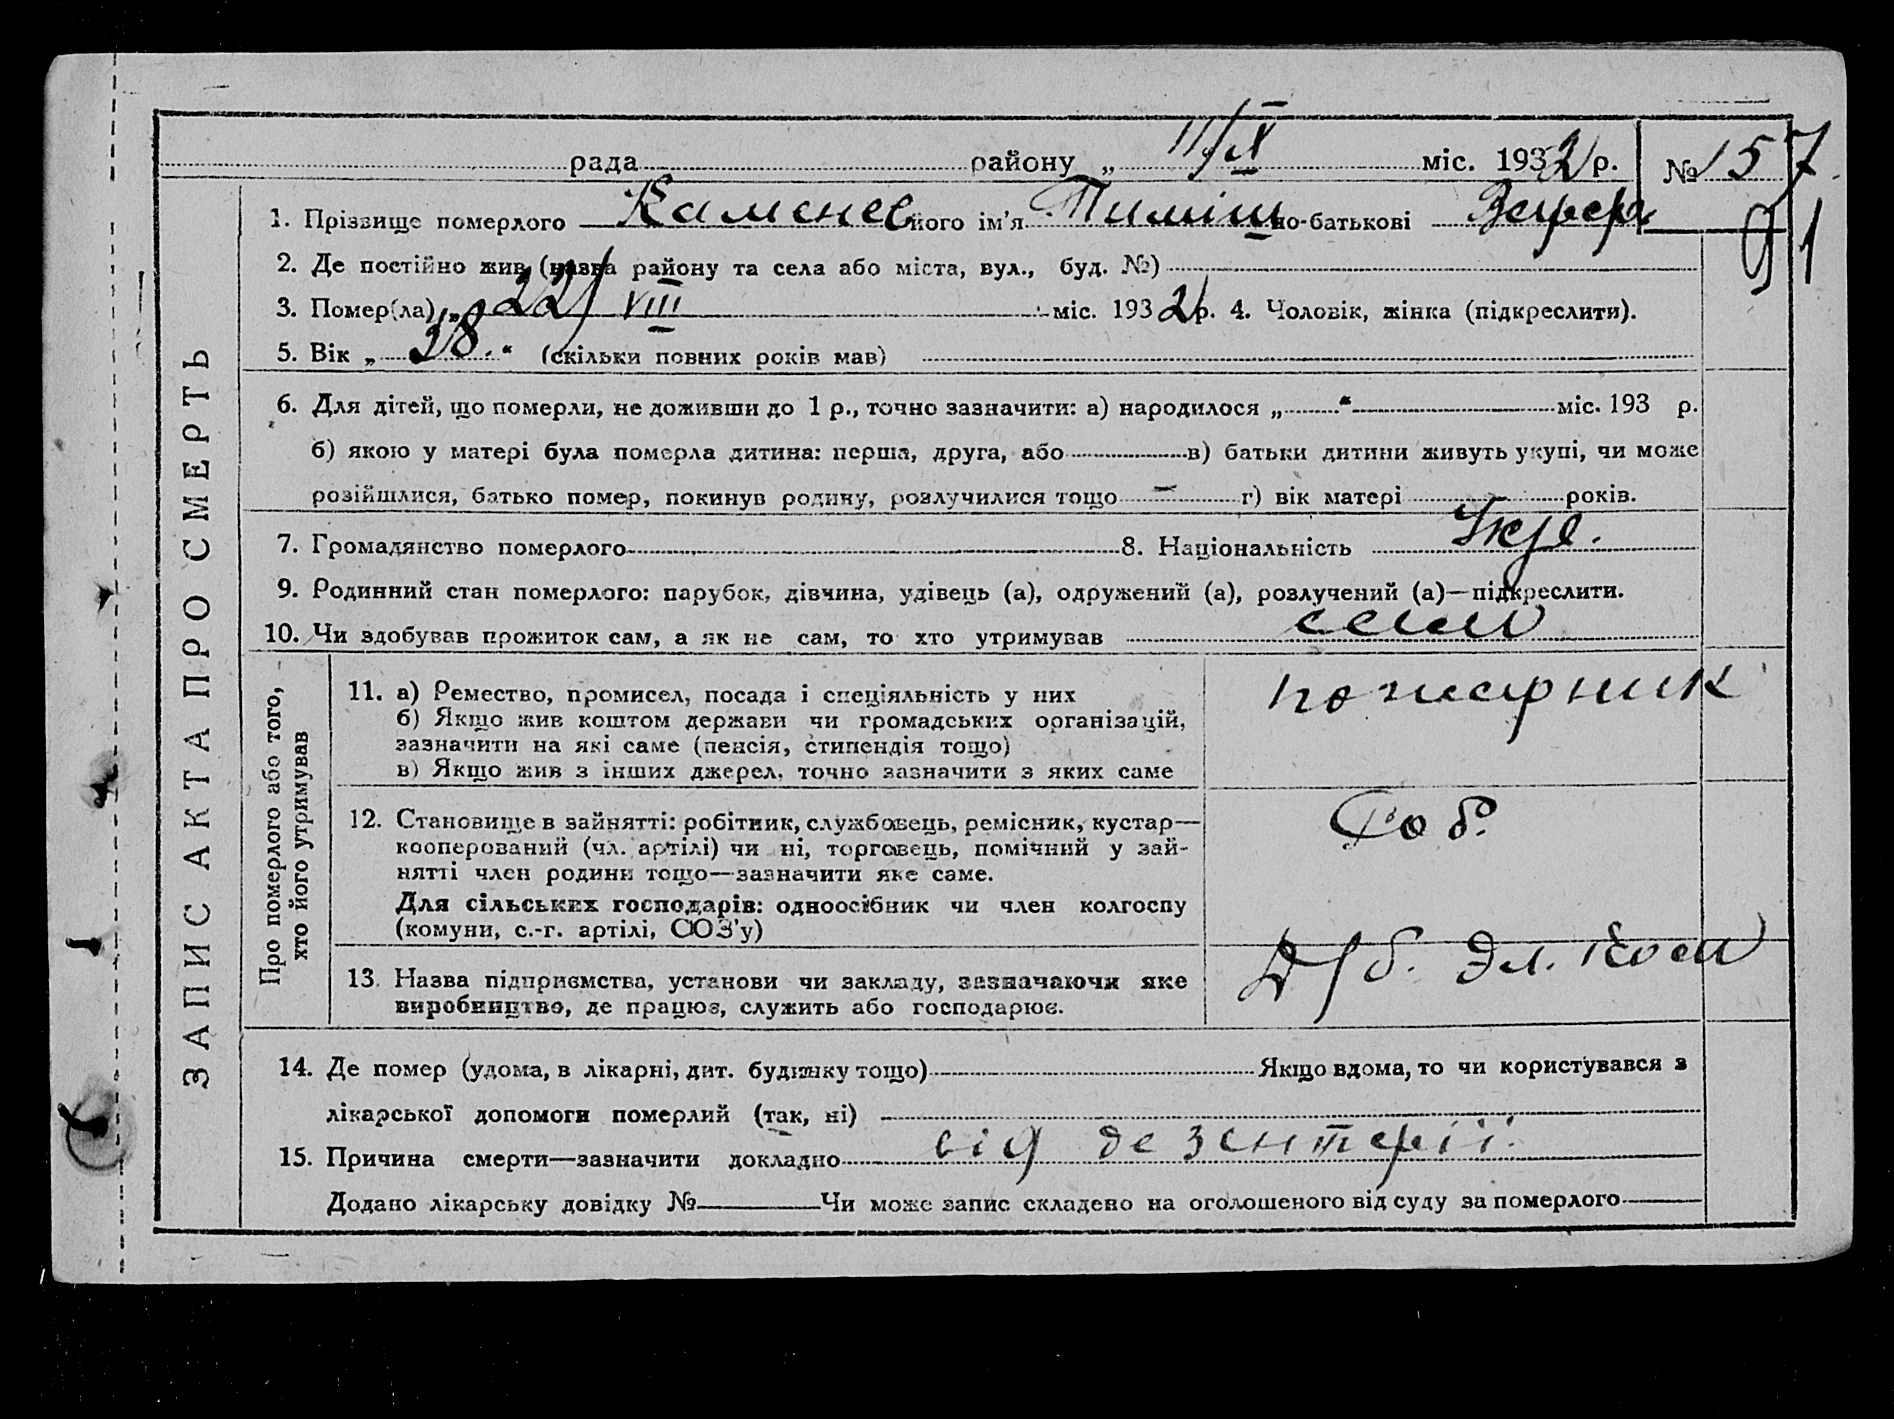 рада району „ 11/IX міс. 1932 р. № 157
91
1. Прізвище померлого Каменев його ім'я Тиміш по-батькові
2. Де постійно жив (назва району та села або міста, вул., буд. №)
3. Помер(ла) „ 22/VIII міс. 1932 р. 4. Чоловік, жінка (підкреслити).
5. Вік „ 38. “ (скільки повних років мав)
6. Для дітей, що померли, не доживши до 1 р., точно зазначити: а) народилося „ “ міс. 193 р.
б) якою у матері була померла дитина: перша, друга, або в) батьки дитини живуть укупі, чи може
розійшлися, батько помер, покинув родину, розлучилися тощо — г) вік матері років.
7. Громадянство померлого 8. Національність Укр.
9. Родинний стан померлого: парубок, дівчина, удівець (а), одружений (а), розлучений (а)—підкреслити.
10. Чи здобував прожиток сам, а як не сам, то хто утримував сам
ЗАПИС АКТА ПРО СМЕРТЬ
Про померлого або того,
хто його утримував
11. а) Ремество, промисел, посада і спеціяльність у них пожарник
б) Якщо жив коштом держави чи громадських організацій,
зазначити на які саме (пенсія, стипендія тощо)
в) Якщо жив з інших джерел, точно зазначити з яких саме
12. Становище в зайнятті: робітник, службовець, ремісник, кустар— Роб.
кооперований (чл. артілі) чи ні, торговець, помічний у зай-
нятті член родини тощо—зазначити яке саме.
Для сільських господарів: одноосібник чи член колгоспу
(комуни, с.-г. артілі, СОЗ'у)
13. Назва підприємства, установи чи закладу, зазначаючи яке
виробництво, де працює, служить або господарює.
14. Де помер (удома, в лікарні, дит. будинку тощо) Якщо вдома, то чи користувався з
лікарської допомоги померлий (так, ні)
15. Причина смерти—зазначити докладно від дезентерії.
Додано лікарську довідку № Чи може запис складено на оголошеного від суду за померлого